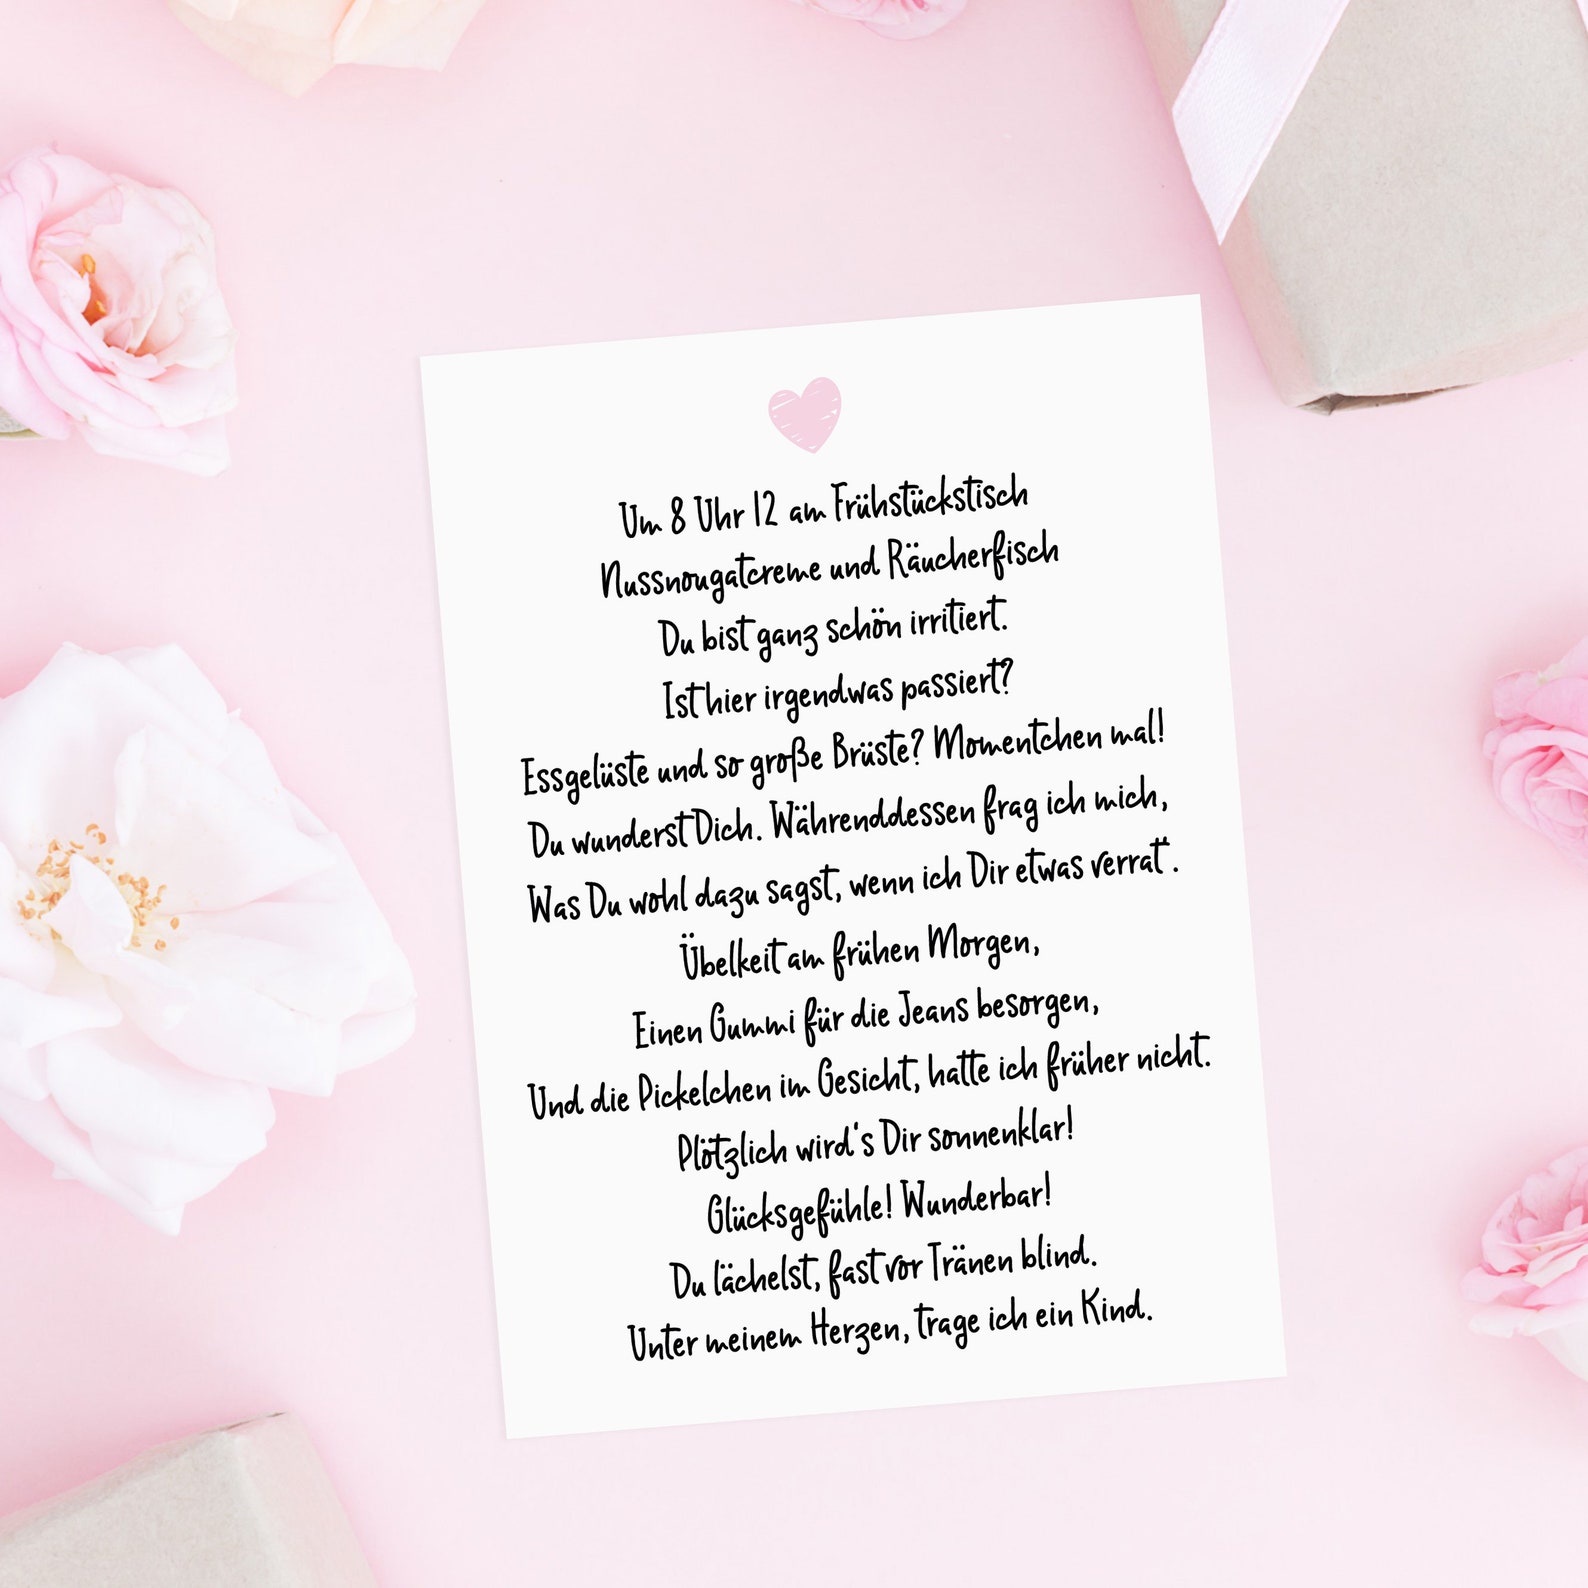 Um 8 Uhr 12 am Frühstückstisch
Nussnougatcreme und Räucherfisch
Du bist ganz schön irritiert.
Ist hier irgendwas passiert?
Essgelüste und so große Brüste? Momentchen mal!
Du wunderst Dich. Währenddessen frag ich mich,
Was Du wohl dazu sagst, wenn ich Dir etwas verrat'.
Übelkeit am frühen Morgen,
Einen Gummi für die Jeans besorgen,
Und die Pickelchen im Gesicht, hatte ich früher nicht.
Plötzlich wird's Dir sonnenklar!
Glücksgefühle! Wunderbar!
Du lächelst, fast vor Tränen blind.
Unter meinem Herzen, trage ich ein Kind.